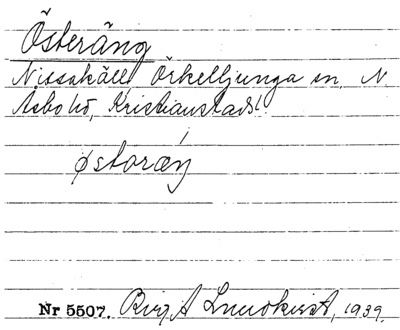 Österäng
Nissakäll, Örkelljunga sn, N.
Åsbo hd, Kristianstads l.
østoræŋ
Nr 5507. Birgit Lundkvist, 1939.